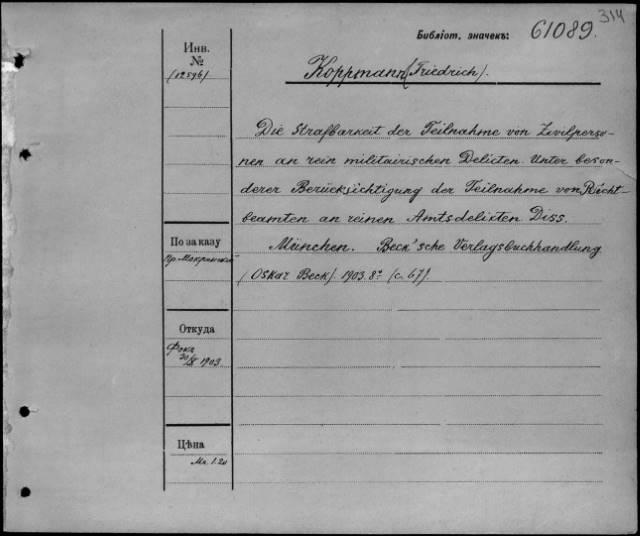 314
Библіот. значекъ: 61089.
Инв.
№
(12596)
Koppmann (Friedrich).
Die Strafbarkeit der Teilnahme von Zivilperso-
nen an rein militairischen Delicten. Unter beson-
derer Berücksichtigung der Teilnahme von Nicht-
beamten an reinen Amtsdelikten Diss.
München. Beck'sche Verlagsbuchhandlung
(Oskar Beck). 1903. 8° (с. 67).
По заказу
Пр. Макринской
Откуда
Фока
30/IX 1903
Цѣна
Мк. 1.20